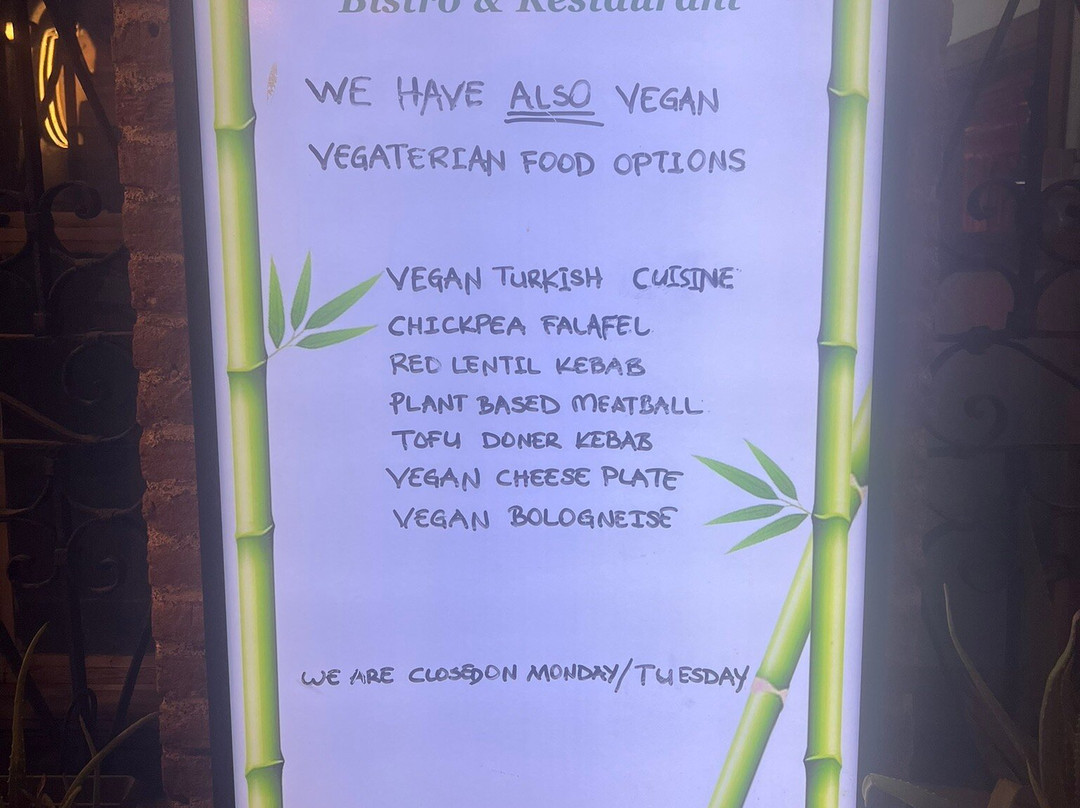 Bistro & Restaurant
WE HAVE ALSO VEGAN
VEGATERIAN FOOD OPTIONS
VEGAN TURKISH CUISINE
CHICKPEA FALAFEL
RED LENTIL KEBAB
PLANT BASED MEATBALL
TOFU DONER KEBAB
VEGAN CHEESE PLATE
VEGAN BOLOGNEISE
WE ARE CLOSEDON MONDAY/TUESDAY